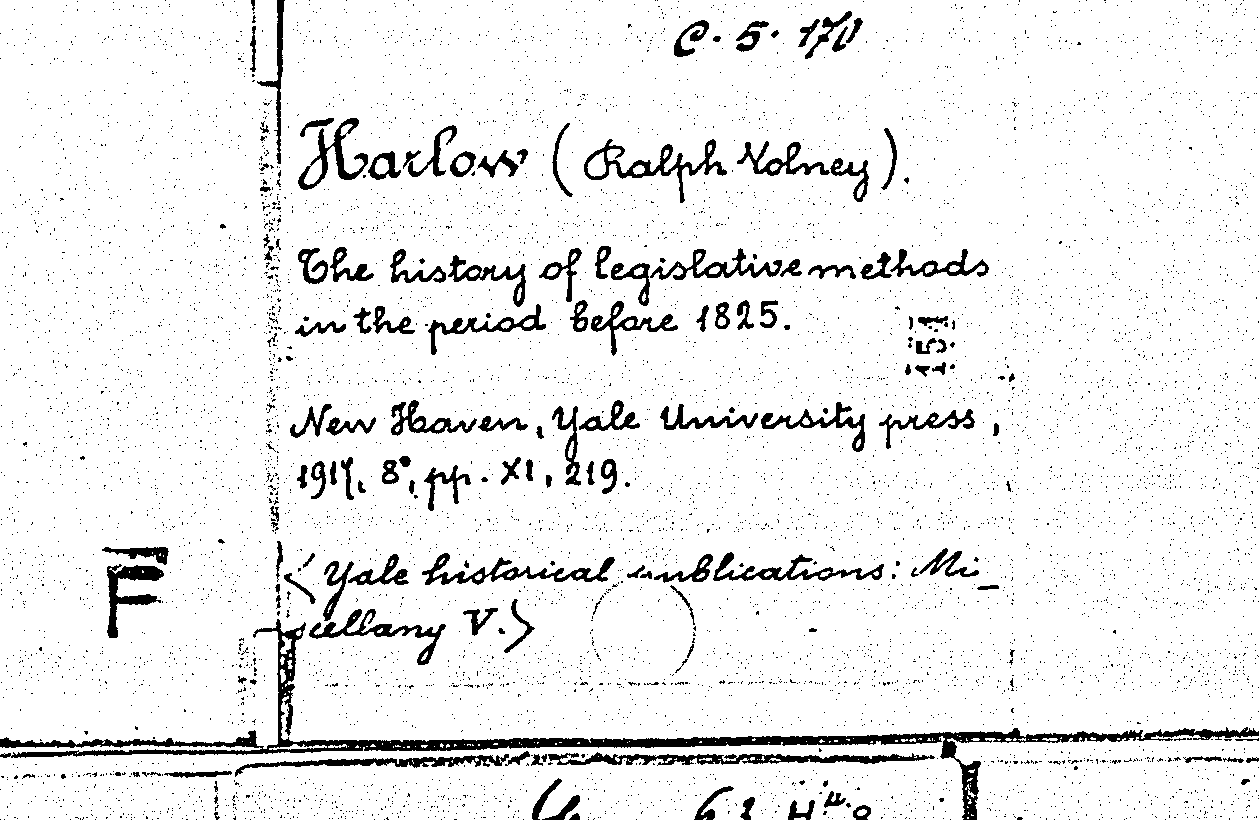 C. 5. 170
Harlow (Ralph Volney).
The history of legislative methods
in the period before 1825.
151
New Haven, Yale University press,
1917, 8°, pp. XI, 219.
F
<Yale historical publications: Mi_
scellany V.>